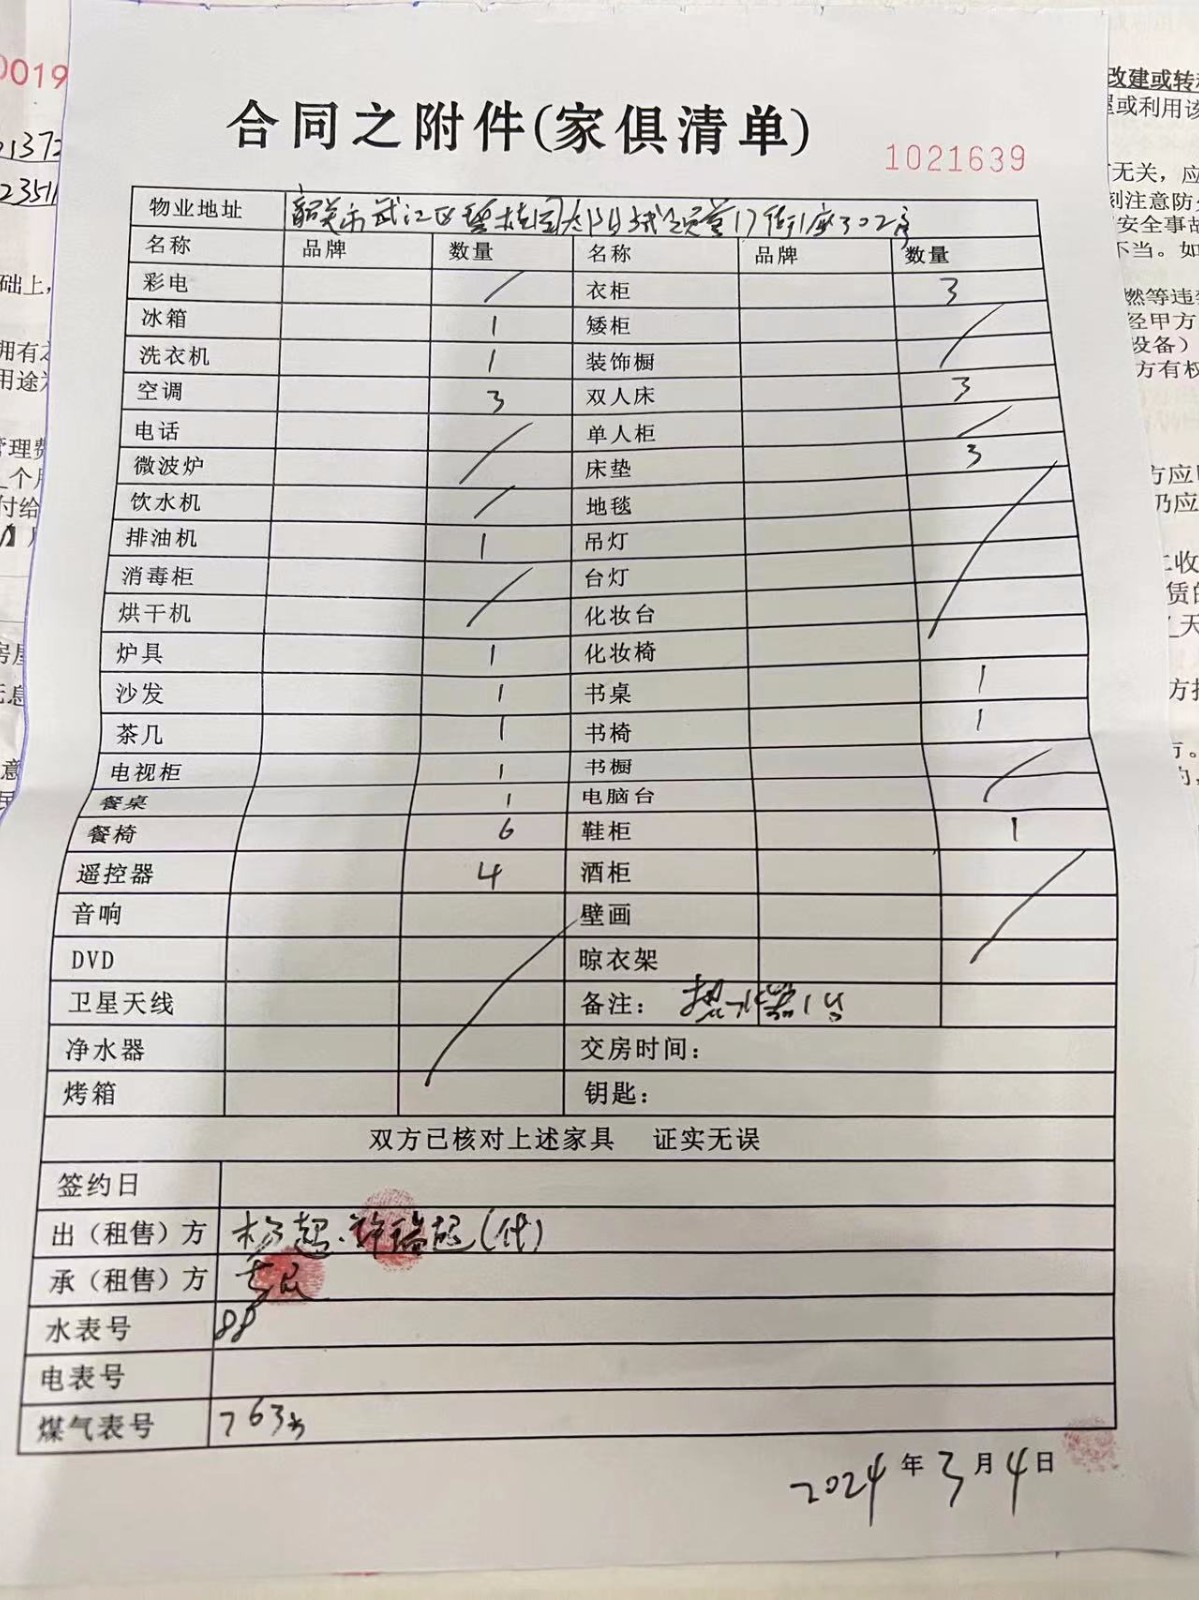 合同之附件(家俱清单)
1021639
物业地址 韶关市武江区碧桂园太阳城 17街1座302房
名称 品牌 数量 名称 品牌 数量
彩电 / 衣柜 3
冰箱 1 矮柜 /
洗衣机 1 装饰橱
空调 3 双人床 3
电话 / 单人柜 /
微波炉 床垫 3
饮水机 / 地毯 /
排油机 1 吊灯
消毒柜 / 台灯
烘干机 化妆台
炉具 1 化妆椅
沙发 1 书桌 1
茶几 1 书椅 1
电视柜 1 书橱 /
餐桌 1 电脑台
餐椅 6 鞋柜 1
遥控器 4 酒柜 /
音响 / 壁画
DVD 晾衣架
卫星天线 备注: 热水器1台
净水器 交房时间:
烤箱 钥匙:
双方已核对上述家具 证实无误
签约日
出（租售）方 杨超.许 (代)
承（租售）方
水表号 88
电表号
煤气表号 763
2024年3月4日
0019
2351
础上,
用途
管理费
个月
付给
改建或转
或利用该
无关，应
刻注意防
安全事故
不当。如
燃等违
经甲方
设备）
方有权
方应
仍应